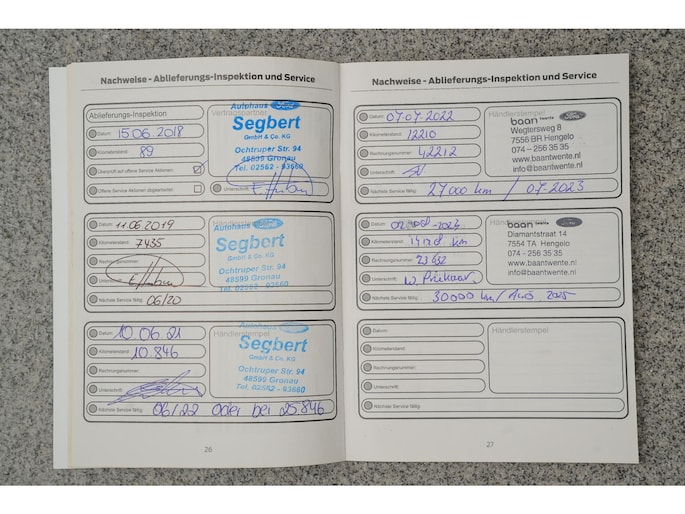 Nachweise - Ablieferungs-Inspektion und Service
Ablieferungs-Inspektion
Datum: 15.06.2018
Kilometerstand: 89
Überprüft auf offene Service Aktionen:
Offene Service Aktionen abgearbeitet:
Vertragspartner:
Autohaus Ford
Segbert
GmbH & Co. KG
Ochtruper Str. 94
48599 Gronau
Tel. 02562 - 93660
Unterschrift:
Datum: 11.06.2019
Kilometerstand: 7435
Rechnungsnummer:
Unterschrift:
Nächste Service fällig: 06/20
Händlerstempel
Autohaus Ford
Segbert
GmbH & Co. KG
Ochtruper Str. 94
48599 Gronau
Tel. 02562 - 93660
Datum: 10.06.21
Kilometerstand: 10.846
Rechnungsnummer:
Unterschrift:
Nächste Service fällig: 06/22 oder bei 25.846
Händlerstempel
Autohaus
Segbert
GmbH & Co. KG
Ochtruper Str. 94
48599 Gronau
Tel. 02562 - 93660
26
Nachweise - Ablieferungs-Inspektion und Service
Datum: 07.07.2022
Kilometerstand: 12210
Rechnungsnummer: 42212
Unterschrift:
Nächste Service fällig: 27000 km / 07.2023
Händlerstempel
baan twente Ford
Wegtersweg 8
7556 BR Hengelo
074 - 256 35 35
www.baantwente.nl
info@baantwente.nl
Datum:
Kilometerstand: km
Rechnungsnummer:
Unterschrift: W.
Nächste Service fällig: 30000 km / 2025
Händlerstempel
baan twente Ford
Diamantstraat 14
7554 TA Hengelo
074 - 256 35 35
www.baantwente.nl
info@baantwente.nl
Datum:
Kilometerstand:
Rechnungsnummer:
Unterschrift:
Nächste Service fällig:
Händlerstempel
27